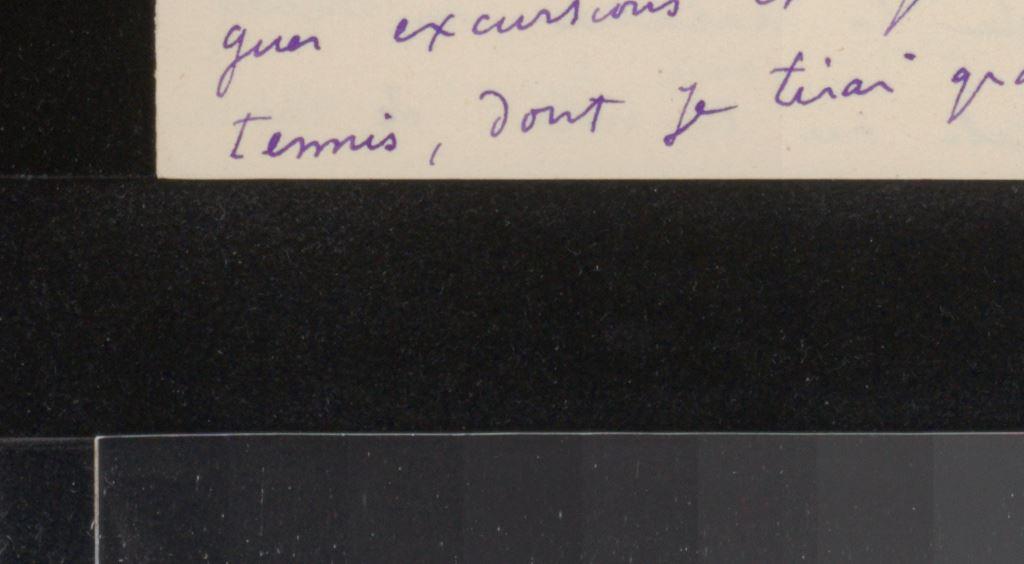 gues excursions
tennis, dont je tirai